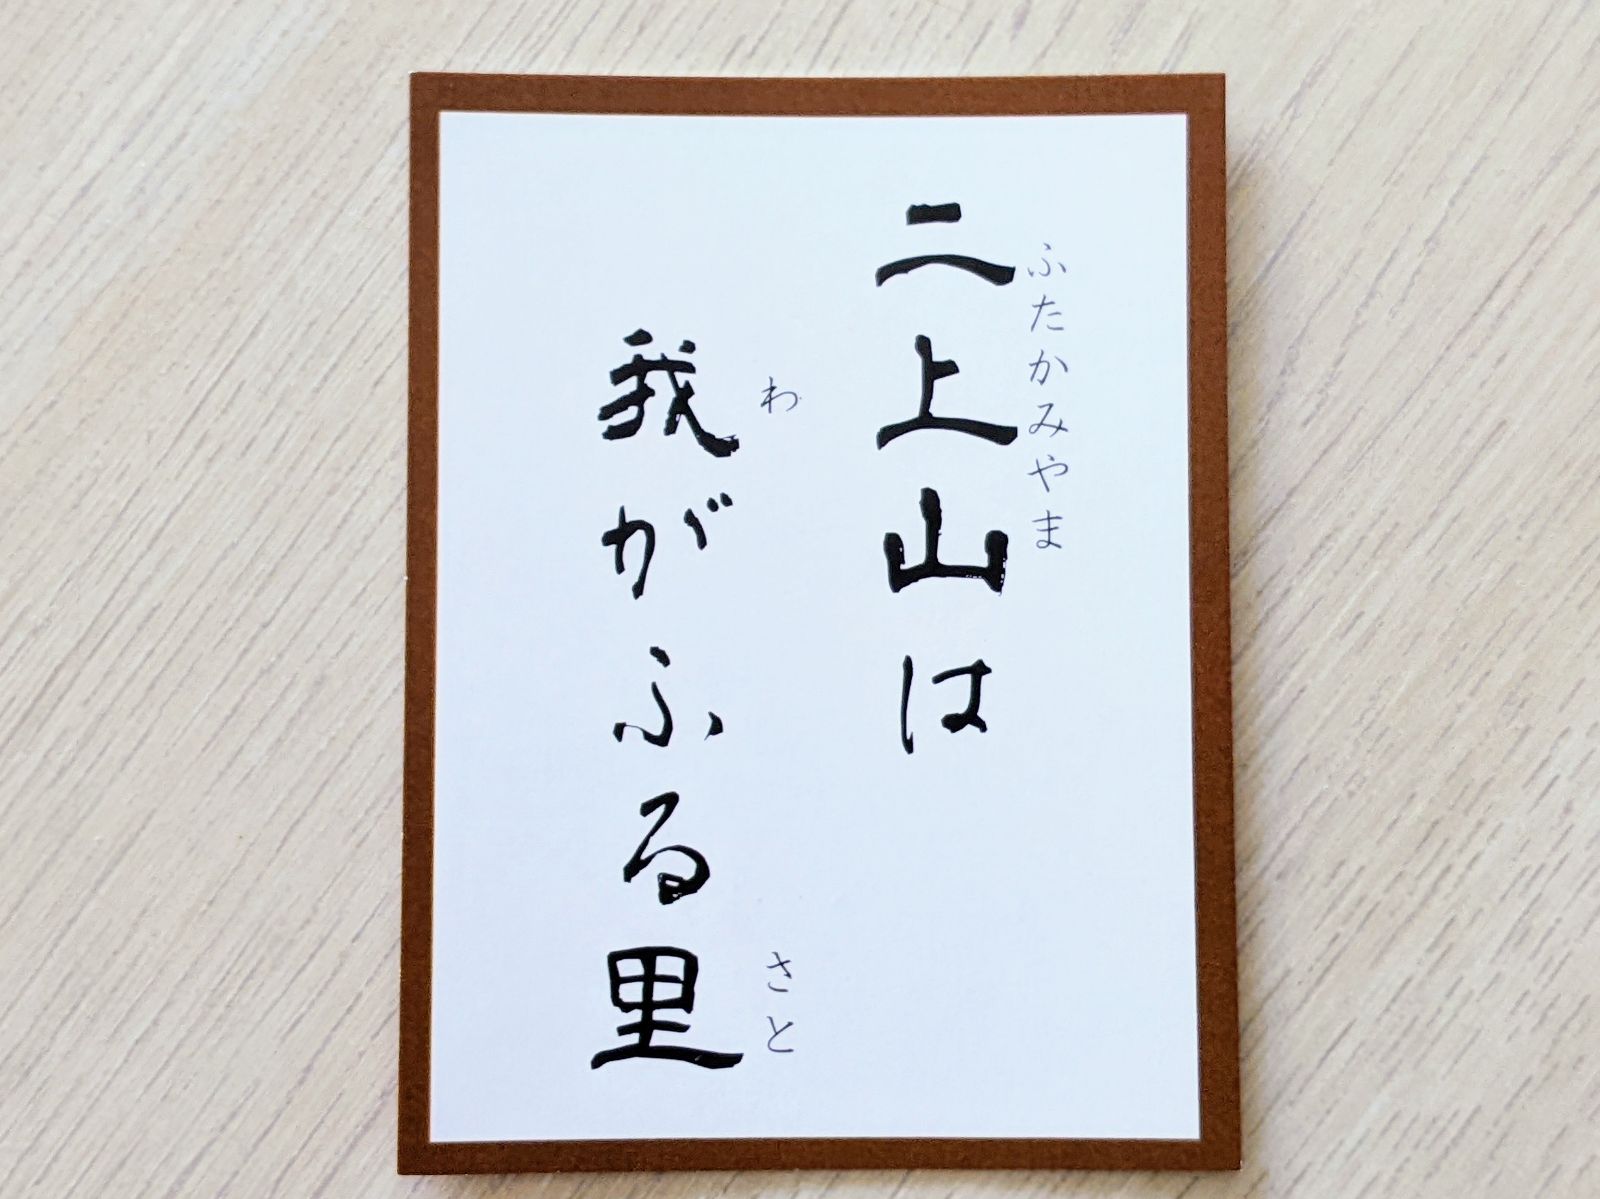 ふたかみやま
二上山は
わ
さと
我がふる里